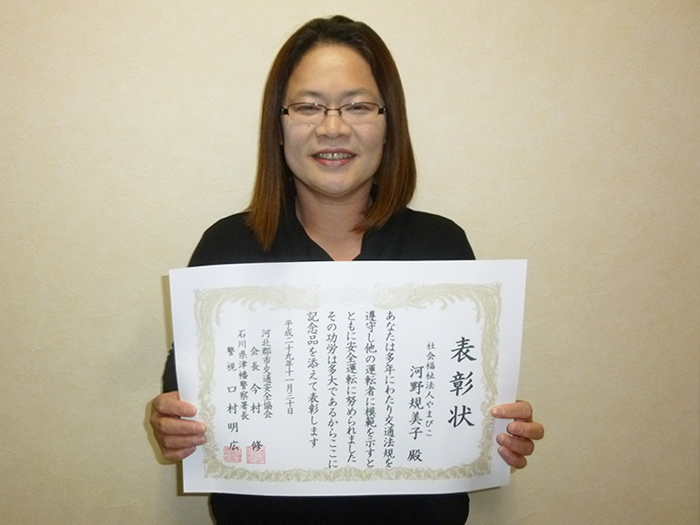 表彰状
社会福祉法人やまびこ
河野規美子 殿
あなたは多年にわたり交通法規を
遵守し他の運転者に模範を示すと
ともに安全運転に努められました
その功労は多大であるからここに
記念品を添えて表彰します
平成二十九年十一月三十日
河北郡市交通安全協会
会長 今村 修
石川県津幡警察署長
警視 口村明広